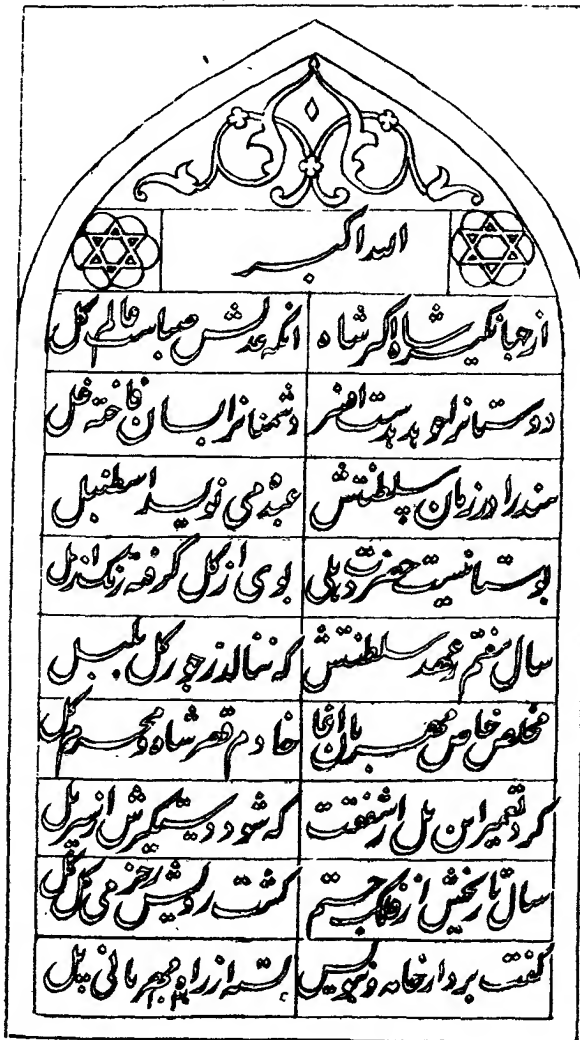 الله اکبر
از جهانگیر شاه اکبر شاه انکه عدلش صباست عالم گل
دوستانرا بدست افسر دشمنانرا بسان فاخته غل
هند را در زمان سلطنتش عبده می نویسد اسطنبل
بوستانیست حضرت دهلی بوی از گل گرفته رنگ از مل
سال هفتم ز عهد سلطنتش که ننالد ز جور گل بلبل
مخلص خاص مهربان اغا خادم قصر شاه و محرم کل
کرد تعمیر این پل از شفقت که شود دستگیرش از سر پل
سال تاریخش از فلک جستم گشت رویش ز خرمی گل گل
گفت بردار خامه و بنویس بسته از راه مهربانی پل